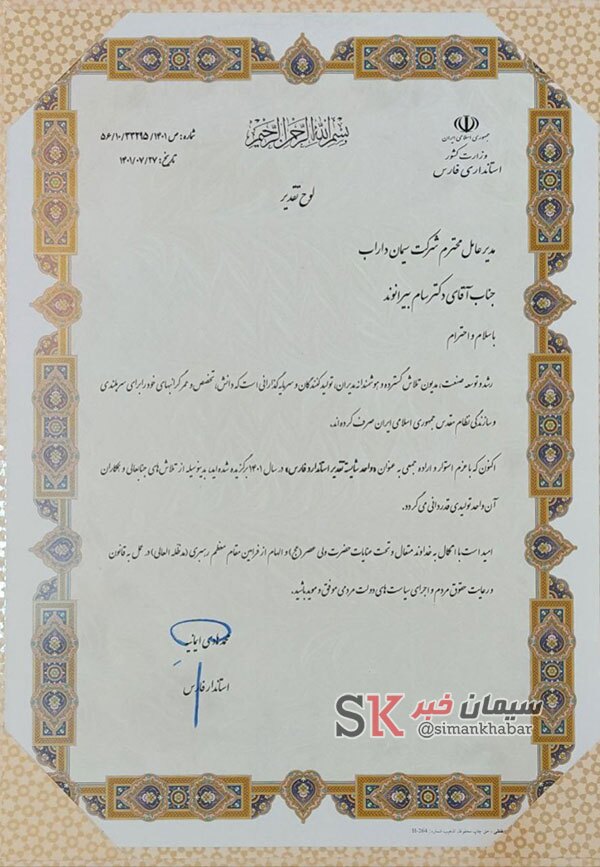 بسم الله الرحمن الرحیم
جمهوری اسلامی ایران
وزارت کشور
استانداری فارس
شماره: ص/۱۴۰۱/۵۶/۱۰/۳۳۲۹۵
تاریخ: ۱۴۰۱/۰۷/۲۷
لوح تقدیر
مدیرعامل محترم شرکت سیمان داراب
جناب آقای دکتر سام بیرانوند
با سلام و احترام
رشد و توسعه صنعت، مدیون تلاش گسترده و هوشمندانه مدیران، تولید کنندگان و سرمایه گذارانی است که دانش، تخصص و عمر گرانبهای خود را برای سربلندی
و سازندگی نظام مقدس جمهوری اسلامی ایران صرف کرده‌اند.
اکنون که با عزم استوار و اراده جمعی به عنوان «واحد شایسته تقدیر استاندارد فارس» در سال ۱۴۰۱ برگزیده شده‌اید، بدینوسیله از تلاش‌های جنابعالی و همکاران
آن واحد تولیدی قدردانی می گردد.
امید است با اتکال به خداوند متعال و تحت عنایات حضرت ولی عصر (عج) و الهام از فرامین مقام معظم رهبری (مدظله العالی) در عمل به قانون
و رعایت حقوق مردم و اجرای سیاست های دولت مردمی موفق و موید باشید.
محمدهادی ایمانیه
استاندار فارس
سیمان خبر SK
@simankhabar
حق چاپ محفوظ، تذهیب شماره: H-264